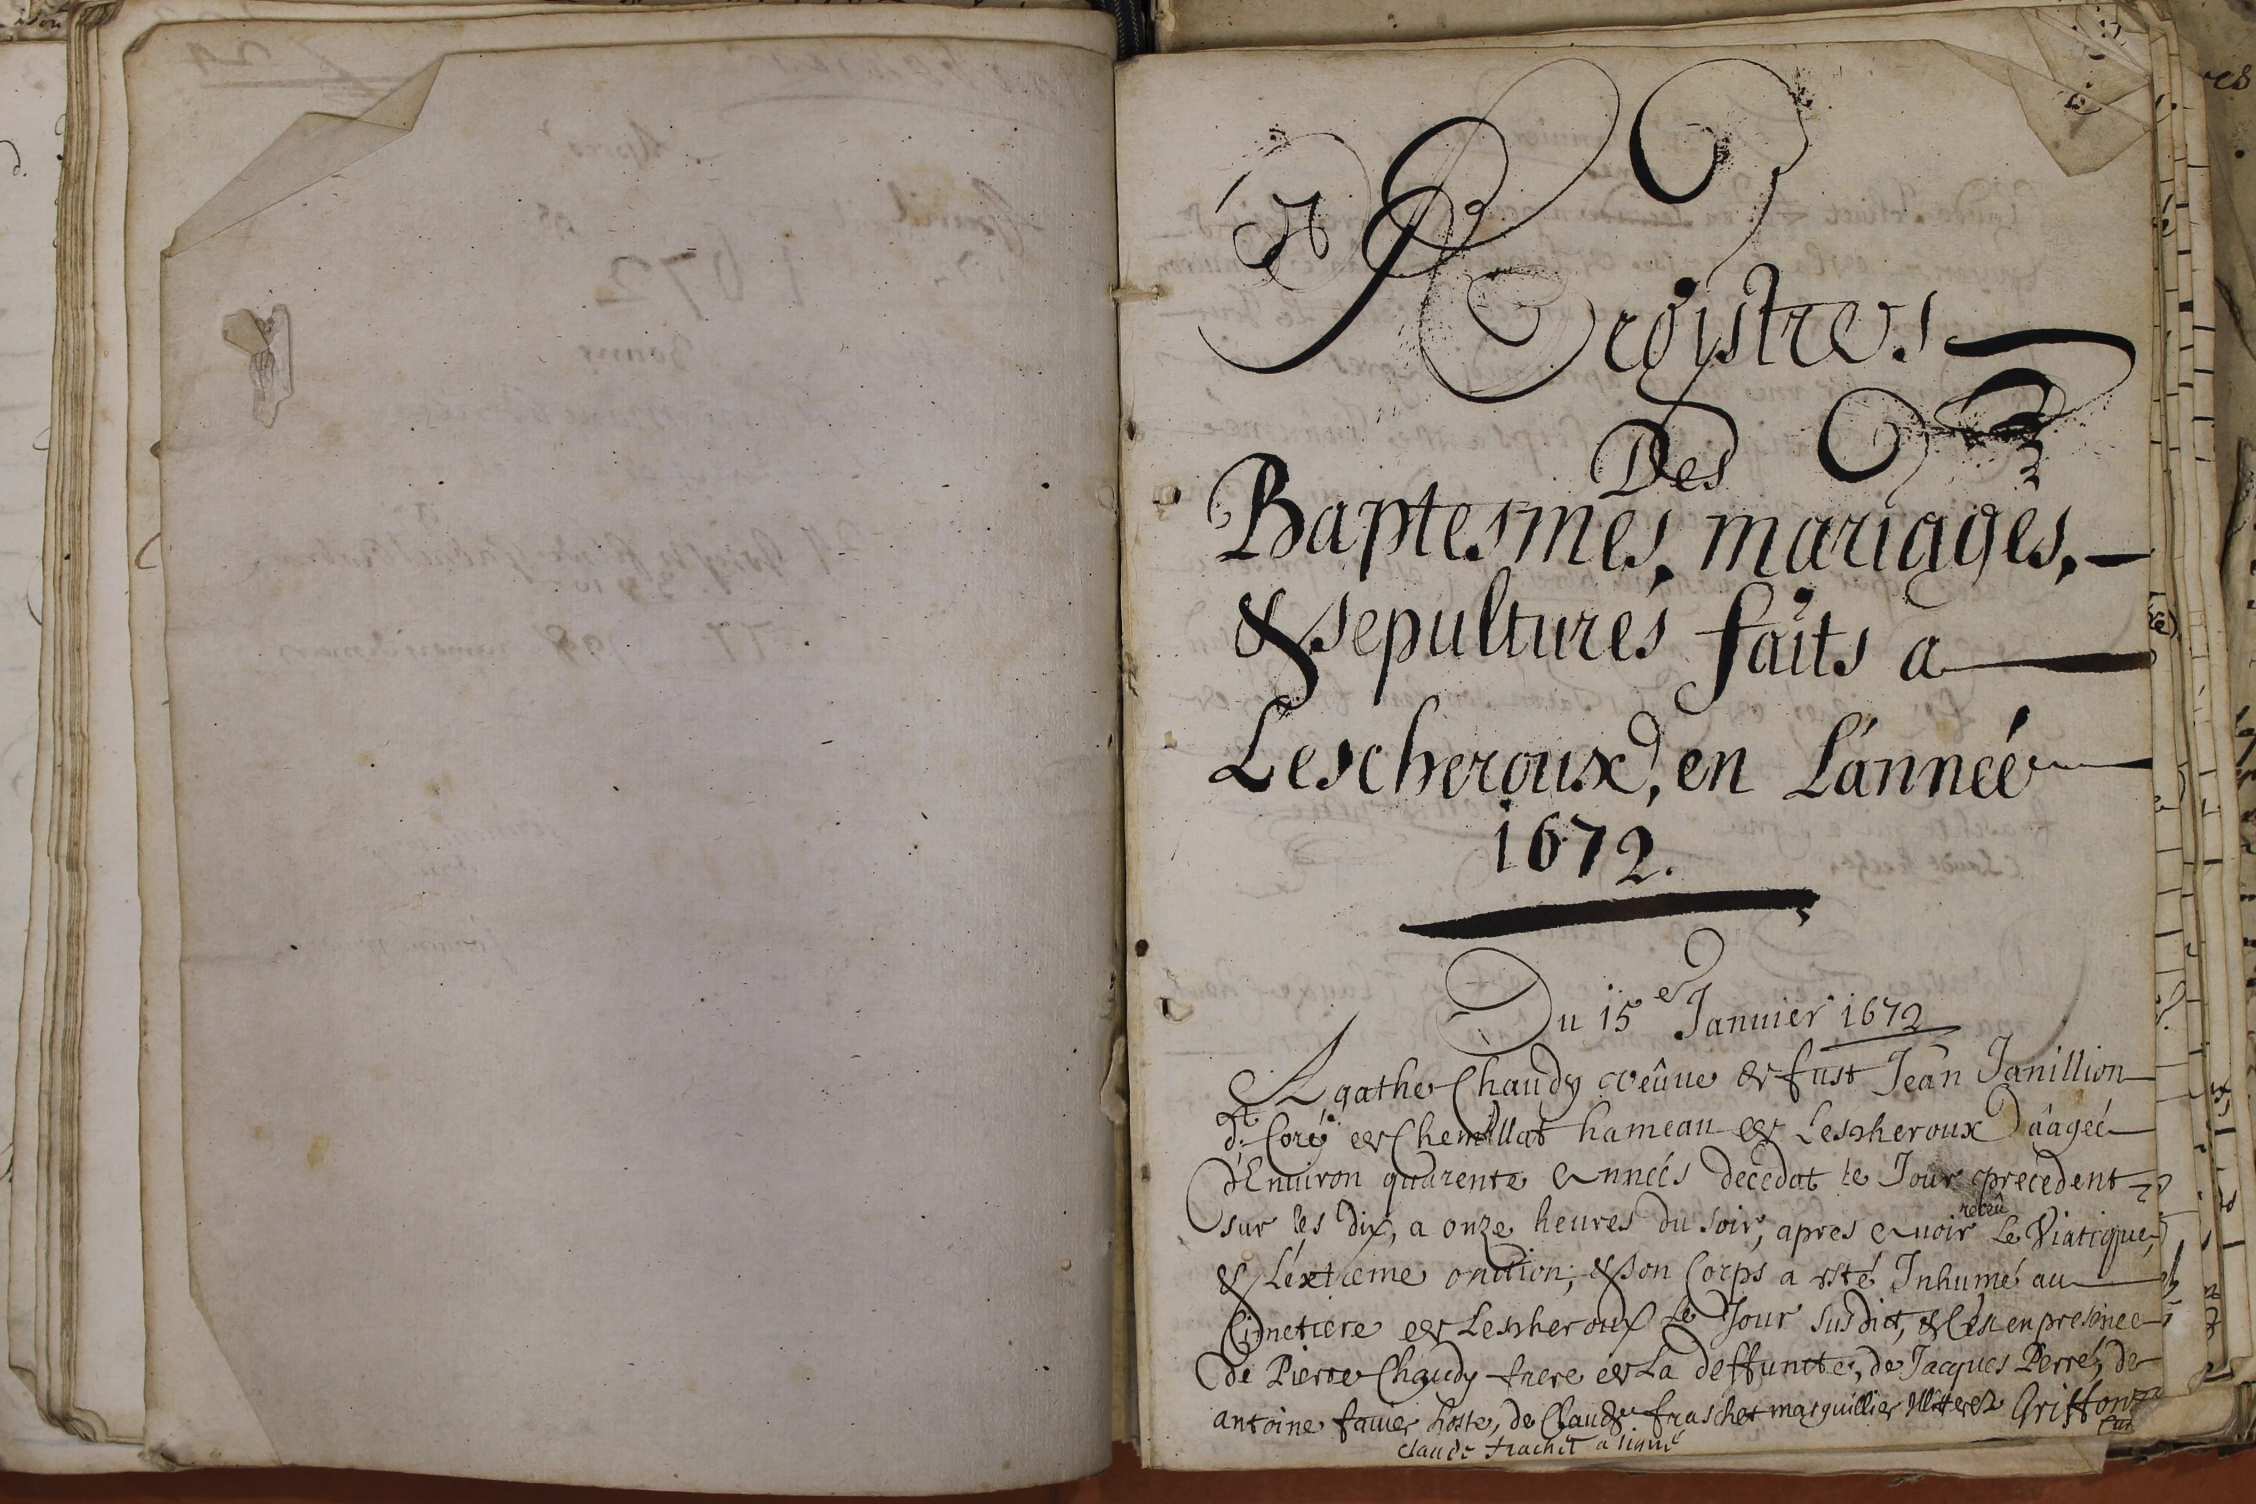 Registres
Des
Baptesmes, mariages,
& sepultures faits a
Lescheroux, en L'année
1672.
Du 15e Janvier 1672
Agathe Chaudy veûve de fust Jean Janillion
dt Coré de Chemillat hameau de Lescheroux âagée
d'Environ quarente Années decedat le Jour precedent
sur les dix, a onze heures du soir, apres Avoir receû Le Viatique,
& L'extreme onction, & son Corps a esté Inhumé au
Cimetiere de Lescheroux Le Jour susdict, & C'est en presence
De Pierre Chaudy frere de La deffuncte, de Jacques Perré, de
antoine favier hoste, de Claude fraschet marguillier Illitterez Griffon
Curé
Claude frachet a signé